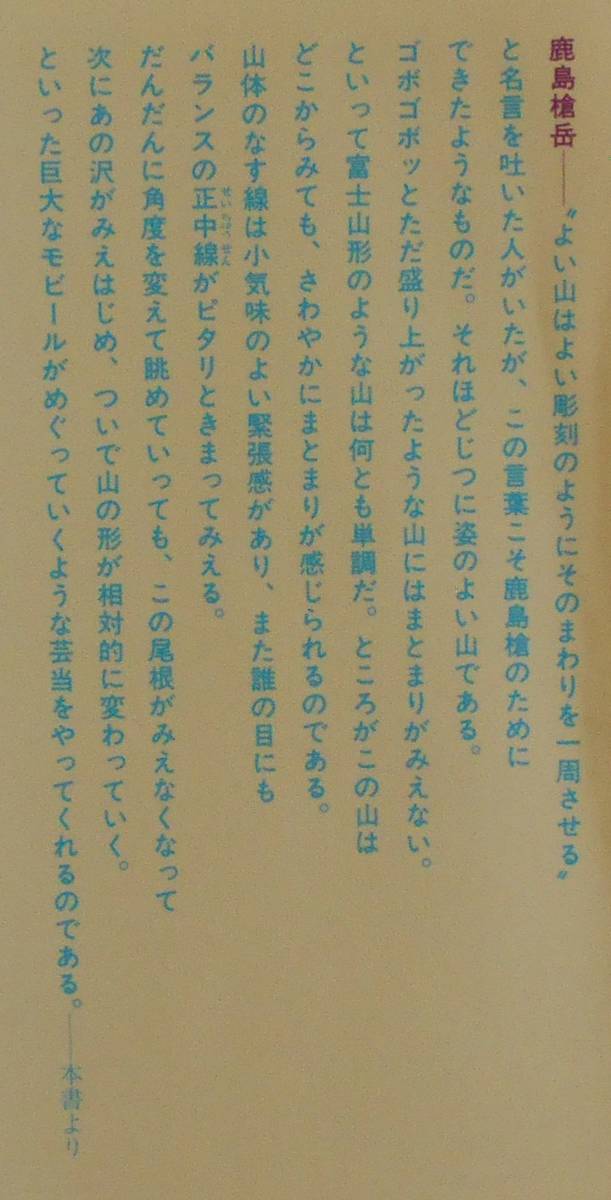 鹿島槍岳──〝よい山はよい彫刻のようにそのまわりを一周させる〟
と名言を吐いた人がいたが、この言葉こそ鹿島槍のために
できたようなものだ。それほどじつに姿のよい山である。
ゴボゴボッとただ盛り上がったような山にはまとまりがみえない。
といって富士山形のような山は何とも単調だ。ところがこの山は
どこからみても、さわやかにまとまりが感じられるのである。
山体のなす線は小気味のよい緊張感があり、また誰の目にも
バランスの正中線がピタリときまってみえる。
せいちゅうせん
だんだんに角度を変えて眺めていっても、この尾根がみえなくなって
次にあの沢がみえはじめ、ついで山の形が相対的に変わっていく。
といった巨大なモビールがめぐっていくような芸当をやってくれるのである。──本書より